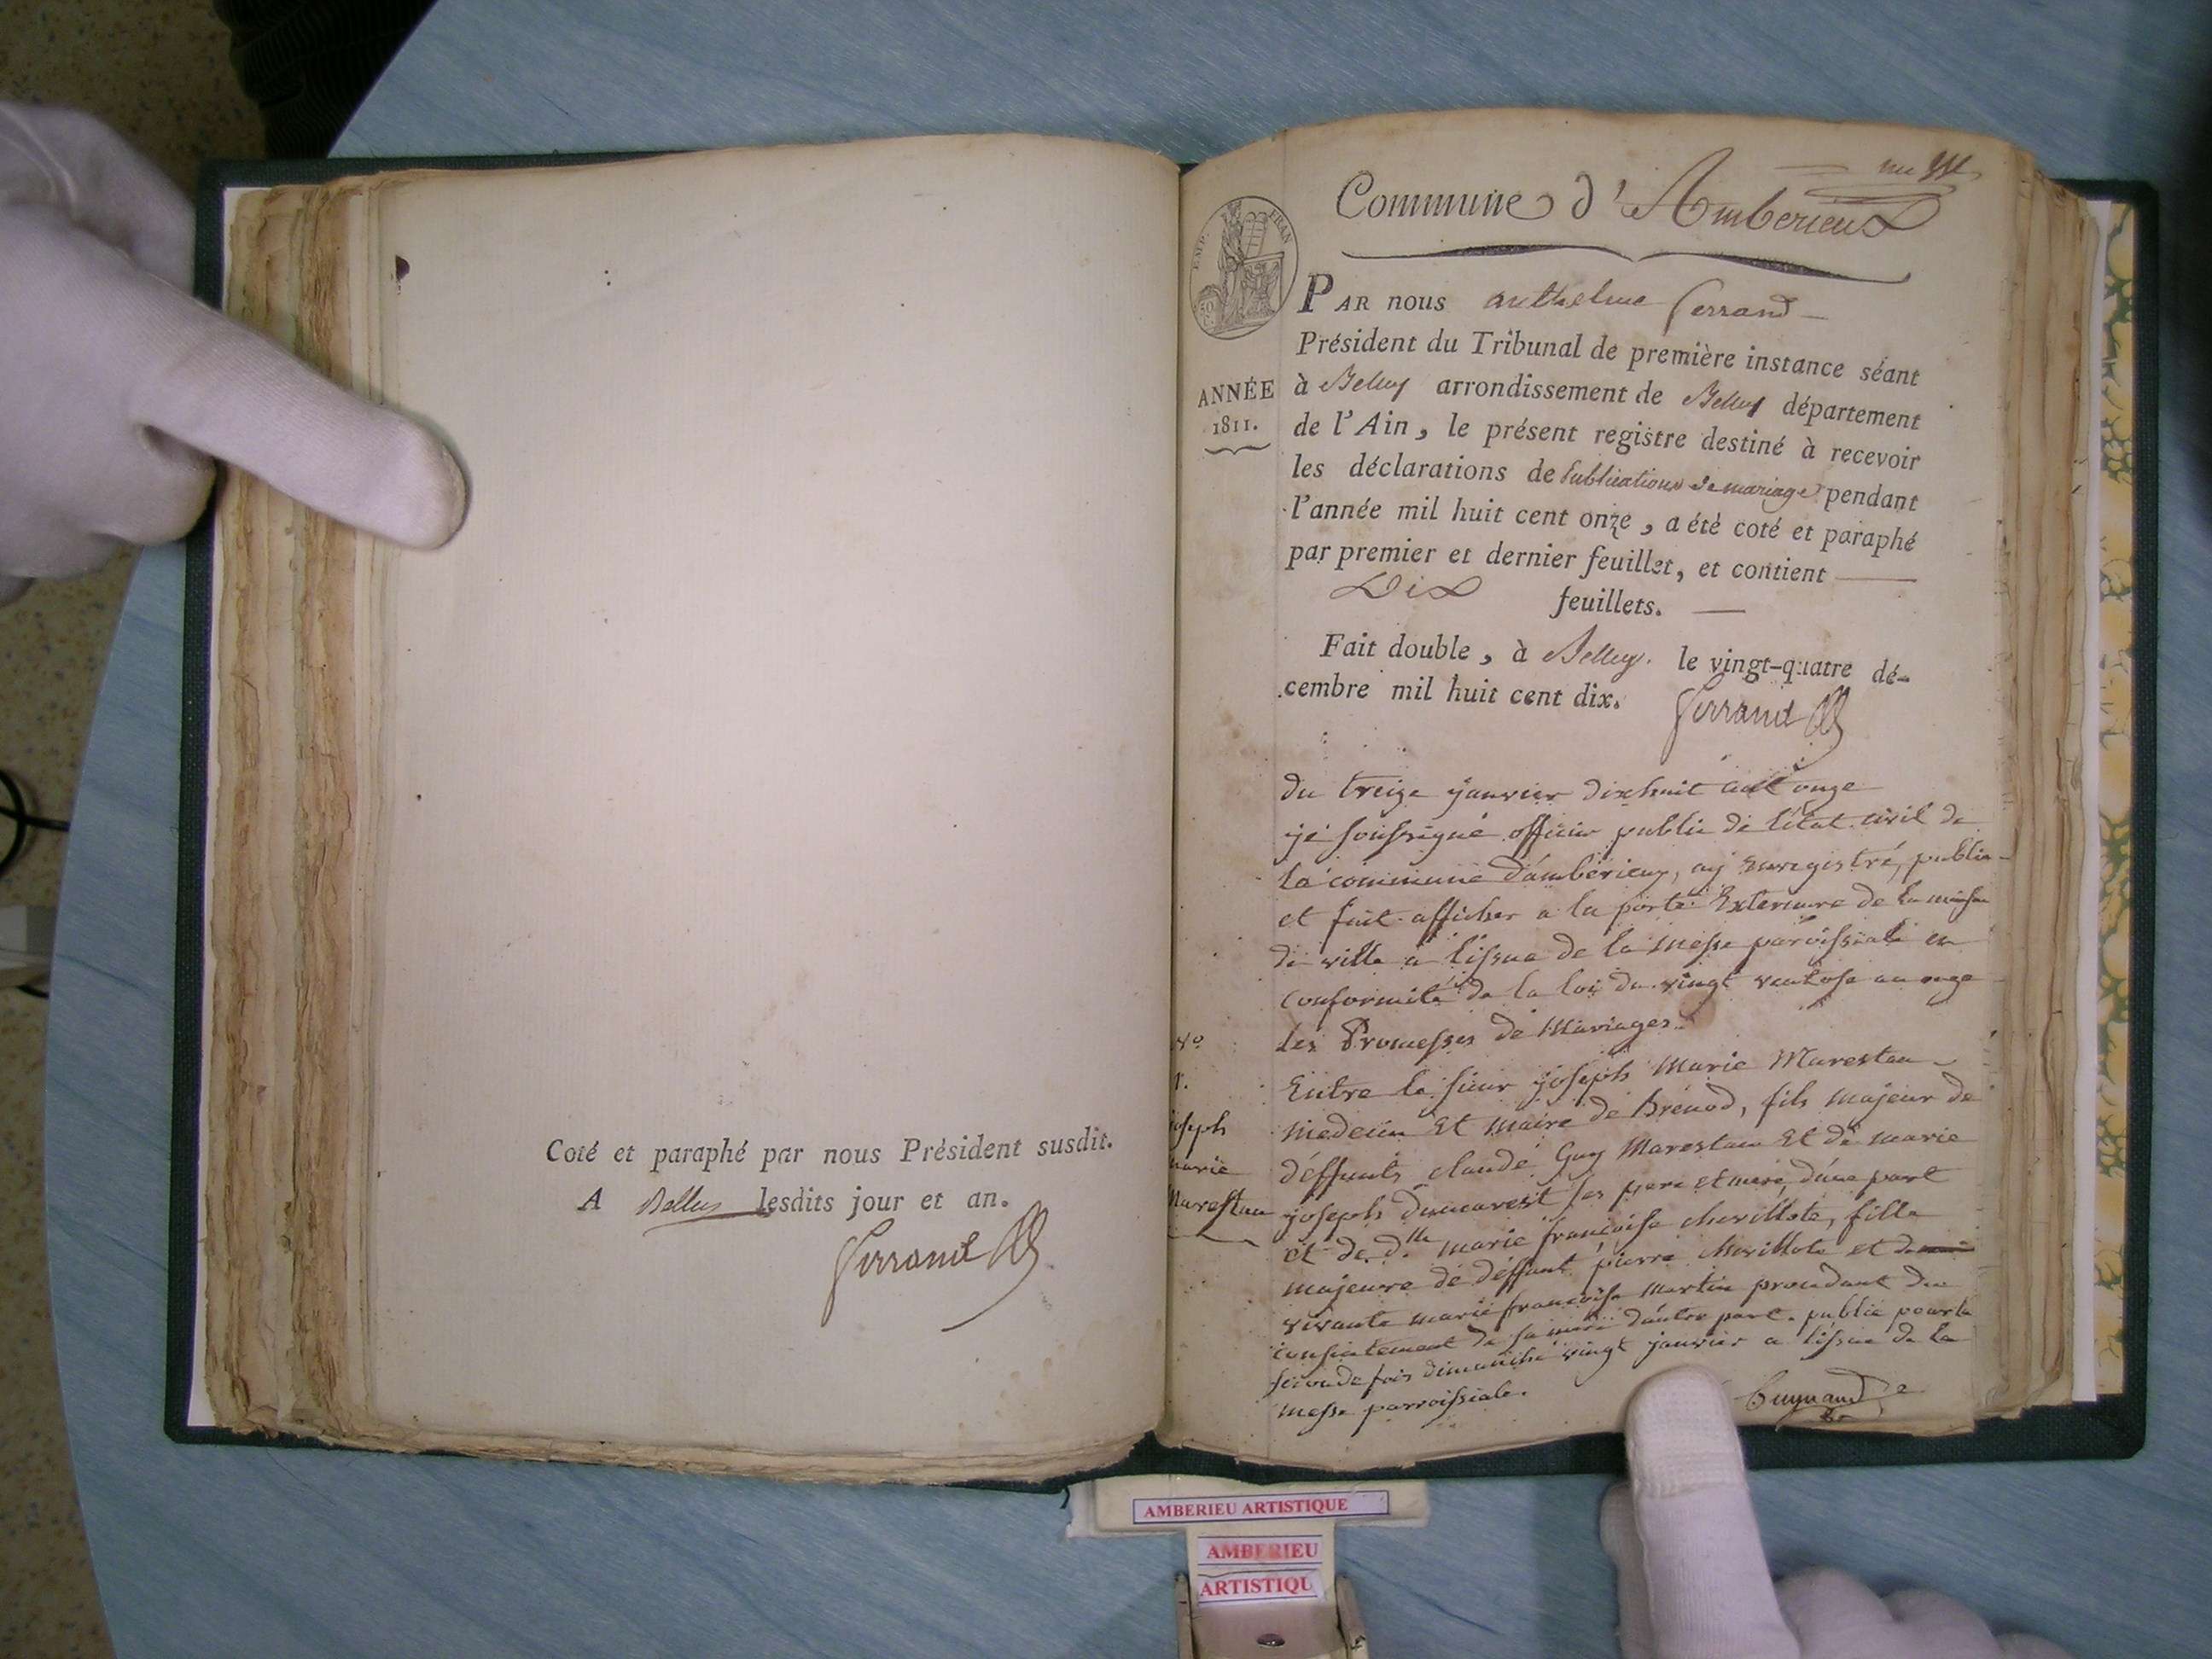 Coté et paraphé par nous Président susdit.
A Belley lesdits jour et an.
Ferrand
Commune d'Amberieux
EMP. FRAN
50 C.
PAR nous anthelme ferrand
Président du Tribunal de première instance séant
ANNÉE
1811.
à Belley arrondissement de Belley département
de l'Ain, le présent registre destiné à recevoir
les déclarations de Publications de mariage pendant
l'année mil huit cent onze, a été coté et paraphé
par premier et dernier feuillet, et contient
Dix feuillets.
Fait double, à Belley. le vingt-quatre dé-
cembre mil huit cent dix. Ferrand
du treize janvier dixhuit cent onze
je soussigné officier public de l'état civil de
la commune d'ambérieux, ay enregistré, publié
et fait afficher a la porte Exterieure de la maison
de ville a l'issue de la messe paroissiale en
conformité de la loi du vingt ventose an onze
les Promesses de Mariages
No
1.
joseph
marie
Marestan
Entre le sieur joseph Marie Marestan
medecin Et maire de Brénod, fils majeur de
déffunts claude Guy Marestan Et de marie
joseph Dumarest ses pere et mere, d'une part
et de dlle marie françoise chevillote, fille
majeure de déffunt pierre chevillote et de
vivante marie françoise martin procedant du
consentement de sa mere d'autre part. publié pour la
seconde fois dimanche vingt janvier a l'issue de la
messe parroissiale.
AMBERIEU ARTISTIQUE
AMBERIEU
ARTISTIQU